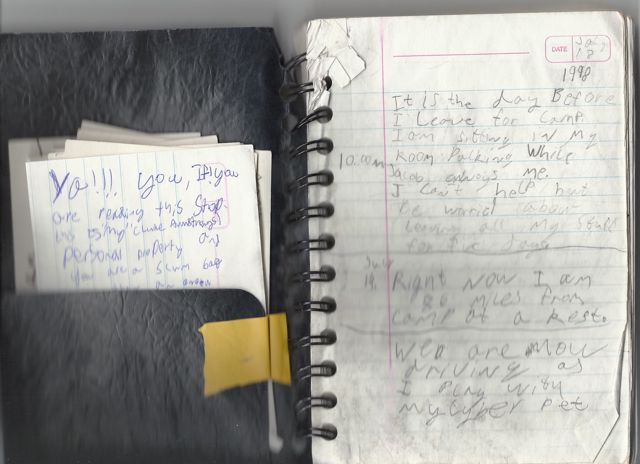 Yo!!! You, If you
are reading this Stop.
this is my (Chase Armstrongs)
Personal property and
You are a Scum bag
DATE July
18
1998
It is the day Before
I Leave for Camp
I am sitting in My
10:00am Room Packing While
Jacob annoys me.
I Can't help but
be worried about
leaving all my Stuff
for five days
July
19 Right Now I am
20 miles from
Camp at a Rest.
Wer are Now
driving as
I Play with
My tyger Pet